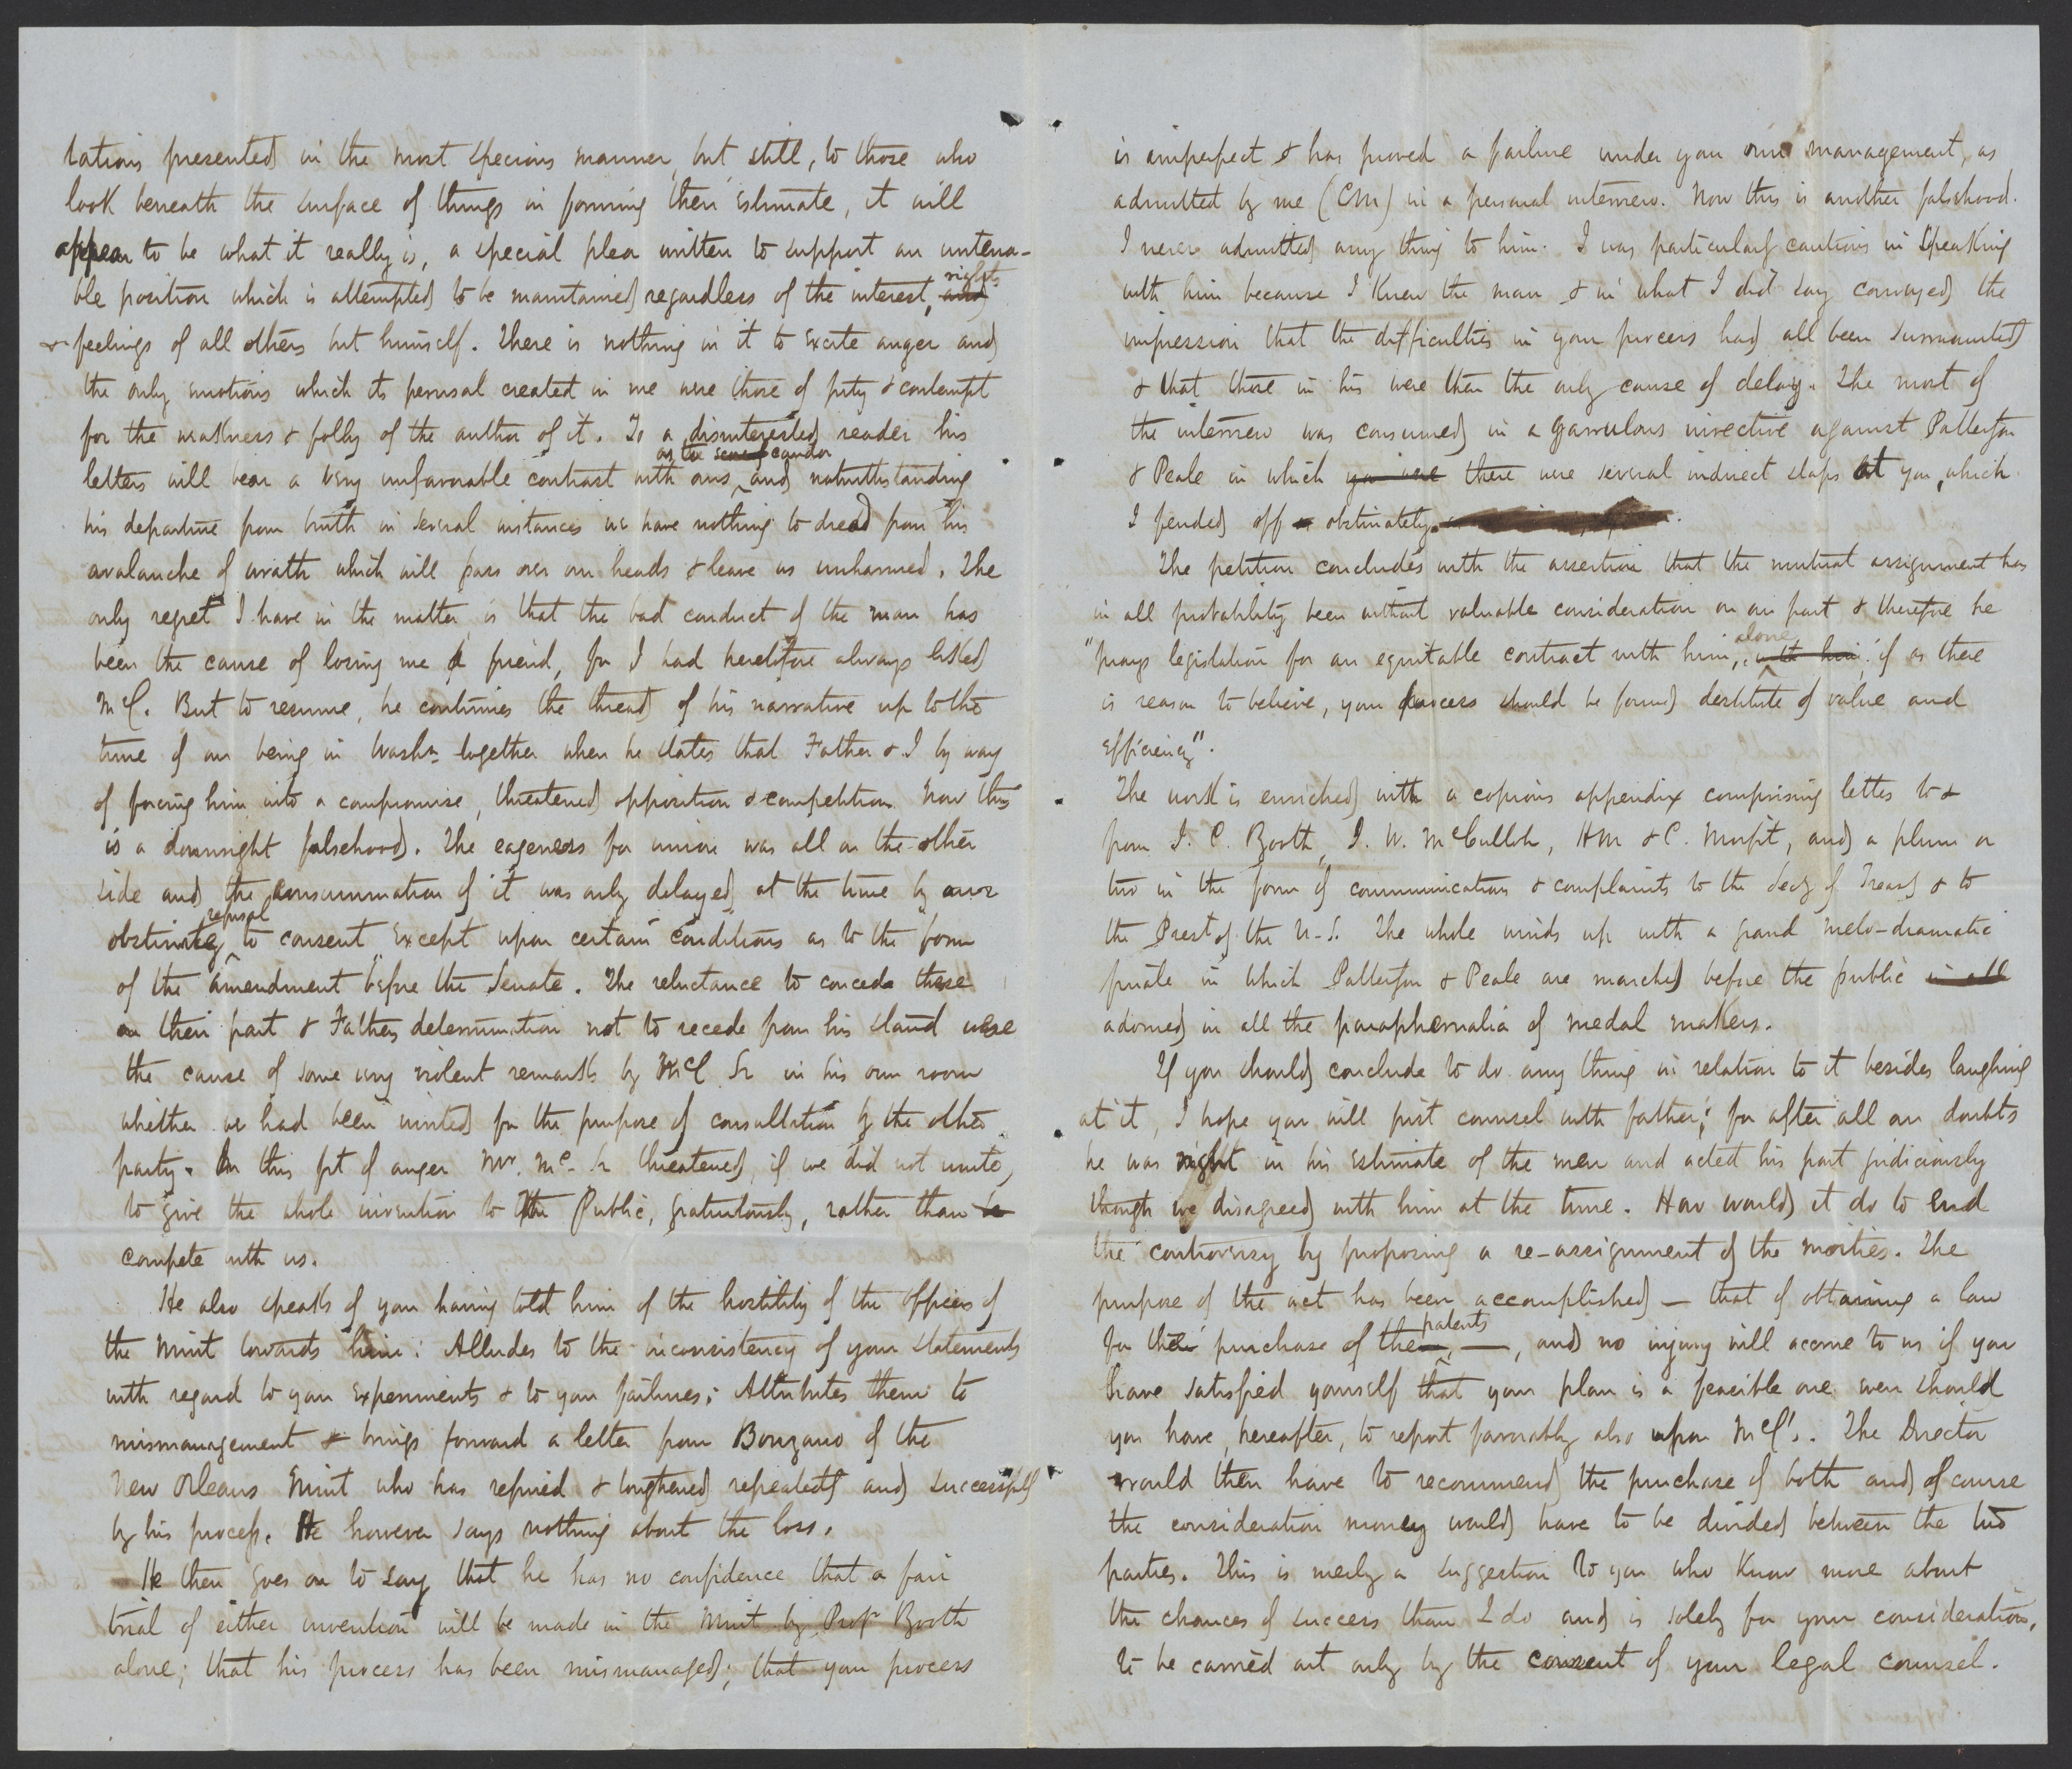 tations presented in the most specious manner, but still, to those who
look beneath the surface of things in forming their estimate, it will
appear to be what it really is, a special plea written to support an untena-
ble position which is attempted to be maintained regardless of the interest, rights and
& feelings of all others but himself. There is nothing in it to excite anger and
the only emotions which its perusal created in me were those of pity & contempt
for the weakness & folly of the author of it. To a disinterested reader his
letters will bear a very unfavorable contrast with ours, as to candor and notwithstanding
his departure from truth in several instances we have nothing to dread from his
avalanche of wrath which will pass over our heads & leave us unharmed. The
only regret I have in the matter is that the bad conduct of the man has
been the cause of losing me a friend, for I had heretofore always liked
McC. But to resume, he continues the thread of his narrative up to the
time of our being in Washn together when he states that Father & I by way
of forcing him into a compromise, threatened opposition & competition. Now this
is a downright falsehood. The eagerness for union was all on the other
side and the consummation of it was only delayed at the time by our
obstinate refusal to consent except upon certain conditions as to the form
of the amendment before the Senate. The reluctance to concede these
on their part & Fathers determination not to recede from his stand were
the cause of some very violent remarks by McC Sr in his own room
whither we had been invited for the purpose of consultation by the other
party. In this fit of anger Mr. Mc. Sr threatened, if we did not unite,
to give the whole invention to the Public, gratuitously, rather than to
compete with us.
He also speaks of you having told him of the hostility of the officers of
the Mint towards him: Alludes to the inconsistency of your statements
with regard to your experiments & to your failures; Attributes them to
mismanagement & brings forward a letter from Bonzano of the
New Orleans Mint who has refined & toughened repeatedly and successfully
by his process. He however says nothing about the loss.
He then goes on to say that he has no confidence that a fair
trial of either invention will be made in the Mint by Prof Booth
alone; that his process has been mismanaged; that your process
is imperfect & has proved a failure under your own management, as
admitted by me (CM) in a personal interview. Now this is another falsehood.
I never admitted any thing to him. I was particularly cautious in speaking
with him because I knew the man & in what I did say conveyed the
impression that the difficulties in your process had all been surmounted
& that those in his were then the only cause of delay. The most of
the interview was consumed in a garrulous invective against Patterson
& Peale in which you were there were several indirect slaps at you, which
I fended off obstinately.
The petition concludes with the assertion that the mutual assignment has
in all probability been without valuable consideration on our part & therefore he
"prays legislation for an equitable contract with him, alone with him, if as there
is reason to believe, your process should be found destitute of value and
efficiency".
The work is enriched with a copious appendix comprising letters to &
from J. C. Booth, J. W. McCulloh, HM & C. Morfit, and a plum or
two in the form of communications & complaints to the Secy of Treasy & to
the Prest of the U.S. The whole winds up with a grand melo-dramatic
finale in which Patterson & Peale are marched before the public in all
adorned in all the paraphernalia of medal makers.
If you should conclude to do any thing in relation to it besides laughing
at it, I hope you will first counsel with father; for after all our doubts
he was right in his estimate of the men and acted his part judiciously
though we disagreed with him at the time. How would it do to end
the controversy by proposing a re-assignment of the moities. The
purpose of the act has been accomplished — that of obtaining a law
for the purchase of the patents —, and no injury will accrue to us if you
have satisfied yourself that your plan is a feasible one even should
you have, hereafter, to report favorably also upon McC's. The Director
would then have to recommend the purchase of both and of course
the consideration money would have to be divided between the two
parties. This is merely a suggestion to you who know more about
the chances of success than I do and is solely for your consideration,
to be carried out only by the consent of your legal counsel.